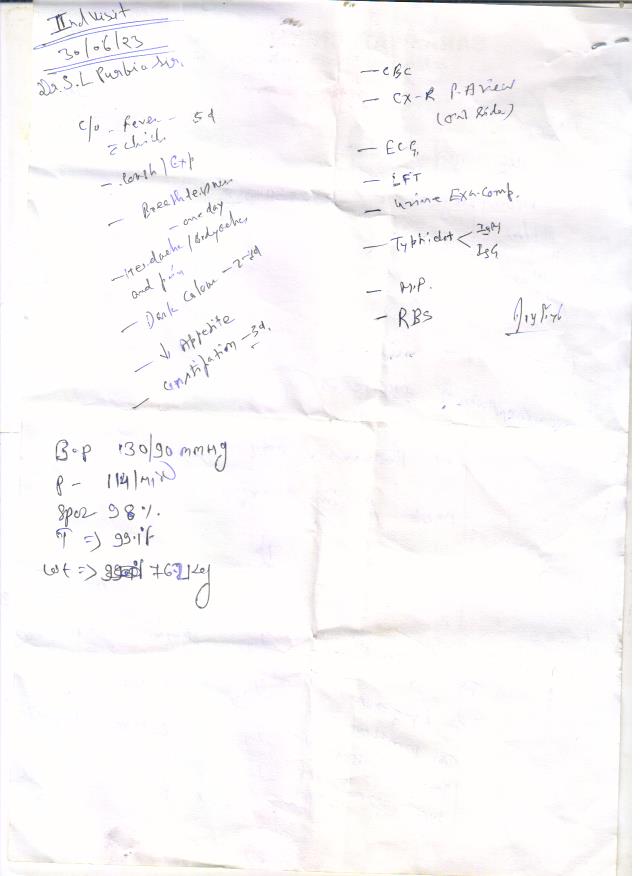 IInd Visit
30/06/23
Dr. S. L Purbia Sir.
C/o - fever - 5d
- Cough / Exp
- Breathlessness
- one day
- Headache / Bodyache
and pain
- Dark Colour - 2-3d
- ↓ Appetite
- Constipation - 3d.
B.P 130/90 mmHg
P - 114/Min
SPO2 98%.
T => 99.1°f
wt =>
Kg
- CBC
- CX-R P.A view
- ECG,
- LFT
- Urine Exa. Comp.
- Typhidot < IgM
IgG
- M.P.
- RBS